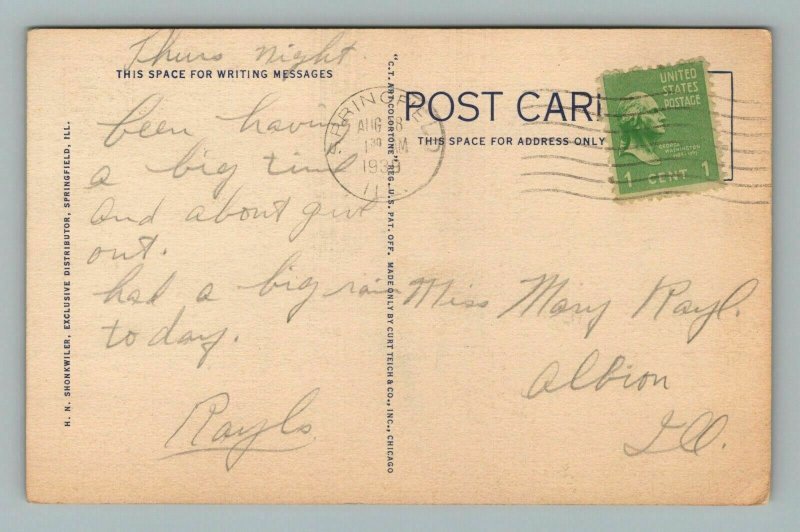 Thurs night.
THIS SPACE FOR WRITING MESSAGES
been having
a big time
and about give
out.
had a big rain
today.
Rayls
H. N. SHONKWILER, EXCLUSIVE DISTRIBUTOR, SPRINGFIELD, ILL.
"C.T. ART-COLORTONE" REG. U.S. PAT. OFF. MADE ONLY BY CURT TEICH & CO., INC., CHICAGO
SPRINGFIELD
AUG 8
1 30 AM
1939
POST CAR
THIS SPACE FOR ADDRESS ONLY
UNITED
STATES
POSTAGE
GEORGE
WASHINGTON
1 CENT 1
Miss Mary Rayl.
Albion
Ill.